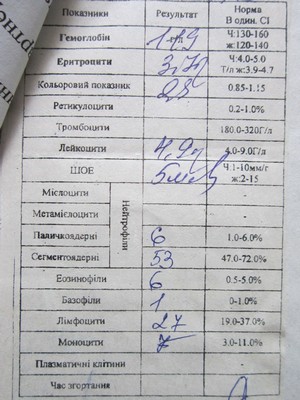 Показники Результат Норма В один. СІ
Гемоглобін Ч:130-160 ж:120-140
Еритроцити Ч:4.0-5.0 Т/л ж:3.9-4.7
Кольоровий показник 0.85-1.15
Ретикулоцити 0.2-1.0%
Тромбоцити 180.0-320Г/л
Лейкоцити 4,9 4.0-9.0Г/л
ШОЕ Ч.1-10мм/г ж:2-15
Нейтрофіли
Мієлоцити -
Метамієлоцити -
Паличкоядерні 6 1.0-6.0%
Сегментоядерні 53 47.0-72.0%
Еозинофіли 6 0.5-5.0%
Базофіли 1 0-1.0%
Лімфоцити 27 19.0-37.0%
Моноцити 7 3.0-11.0%
Плазматичні клітини -
Час згортання